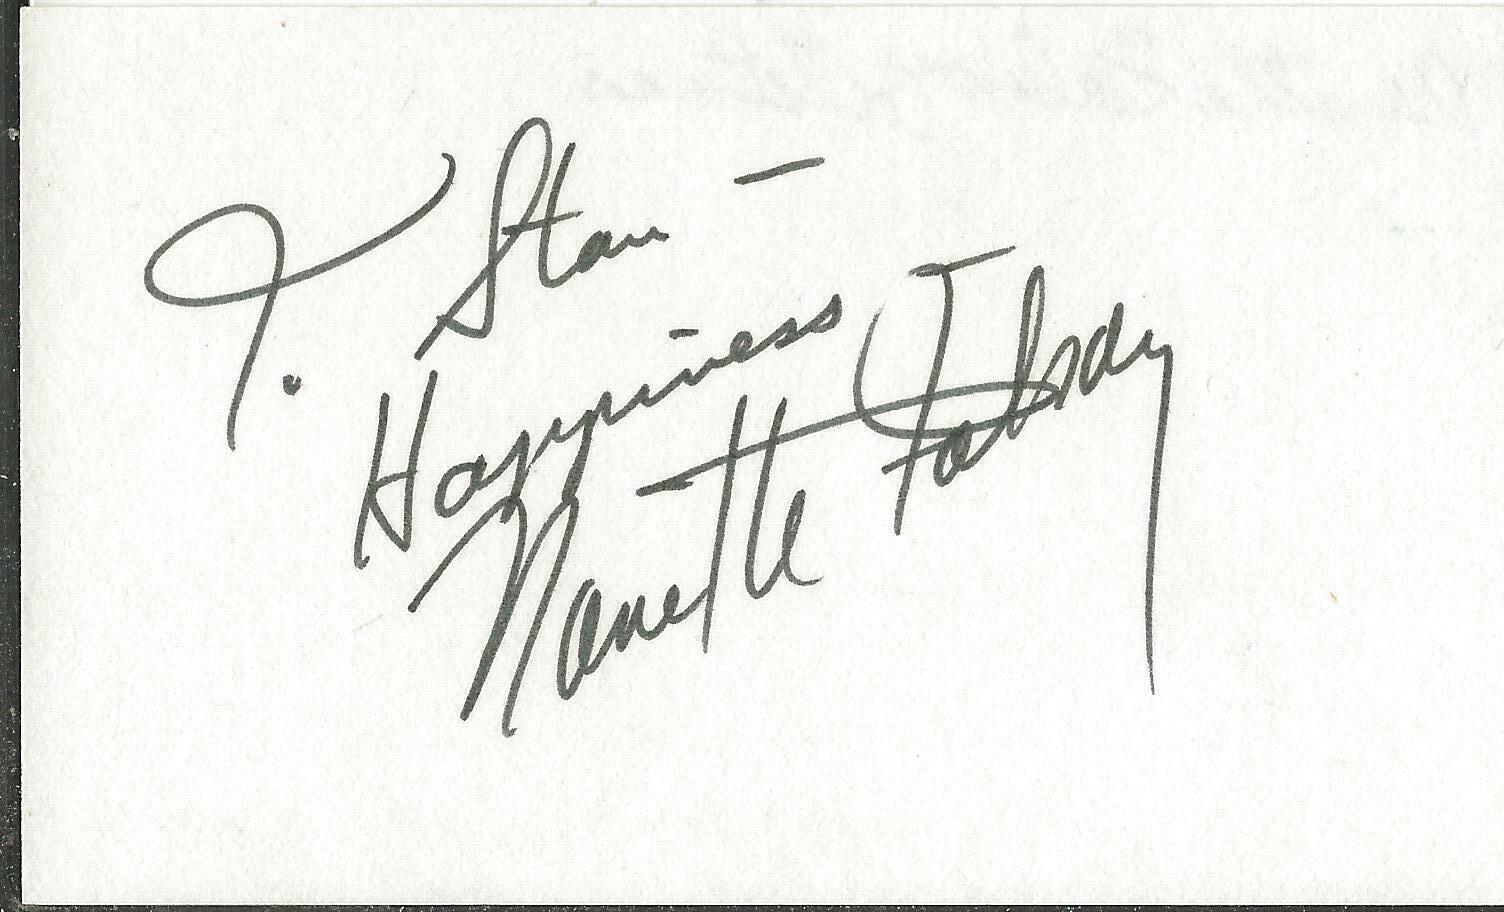 To Stan —
Happiness
Nanette Fabray